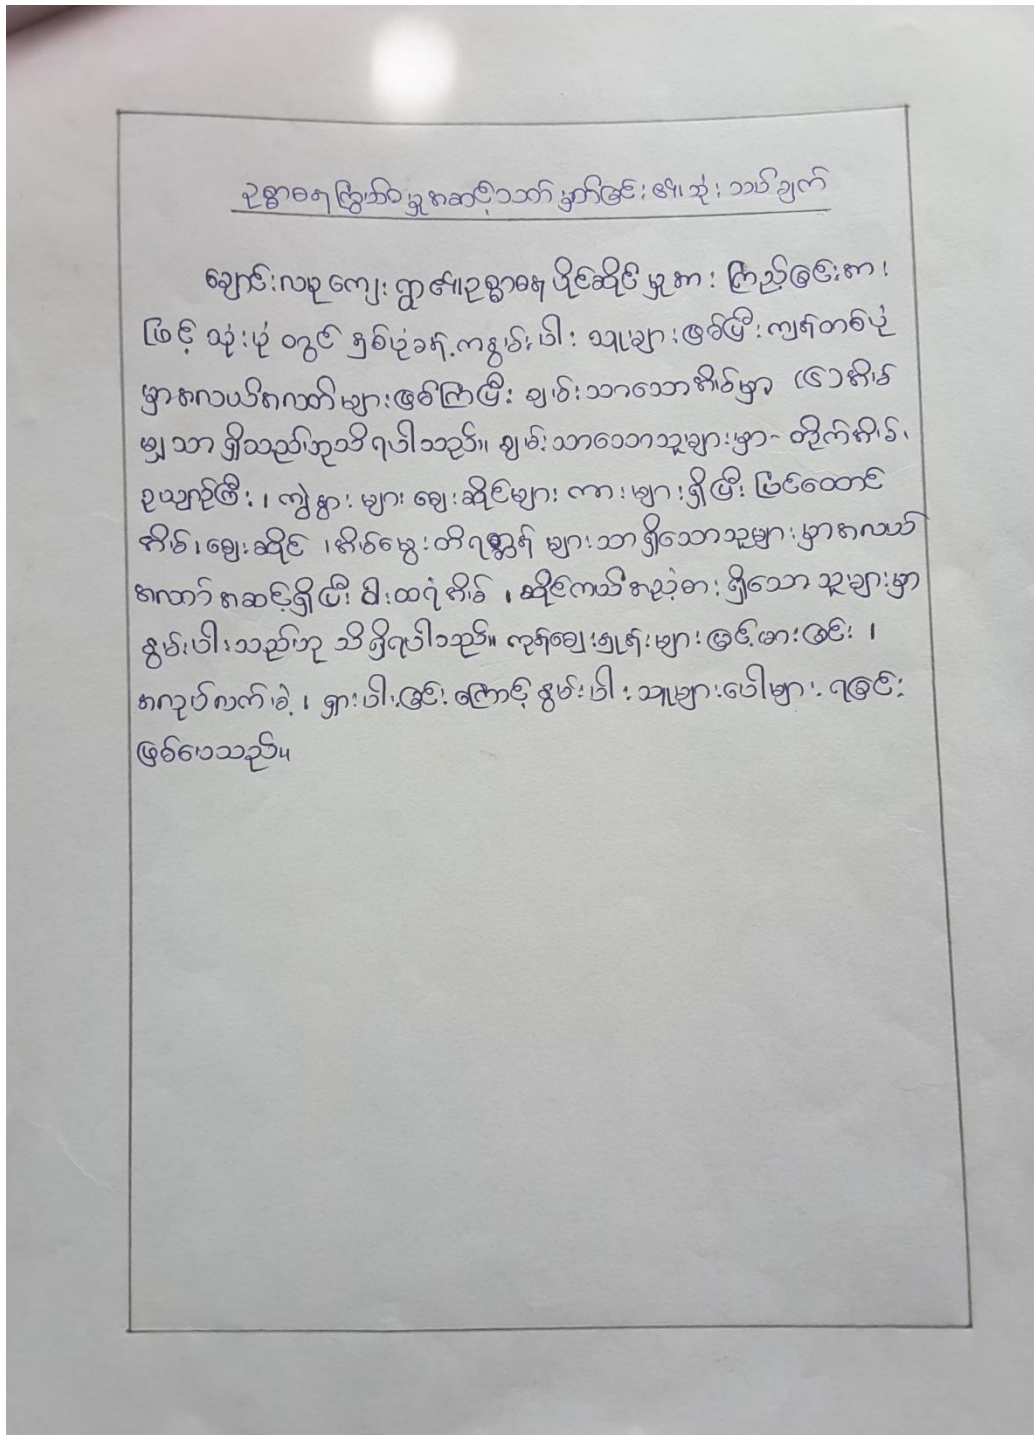 ဥစ္စာဓနကြွယ်ဝမှုအဆင့်သတ်မှတ်ခြင်း၏သုံးသပ်ချက်
ချောင်းလေးကျေးရွာ၏ဥစ္စာဓနပိုင်ဆိုင်မှုအား ကြည့်ခြင်းအား
ဖြင့် သုံးပုံ တွင် နှစ်ပုံခန့်ကနွမ်းပါး သူများဖြစ်ပြီး ကျန်တစ်ပုံ
မှာအလယ်အလတ်များဖြစ်ကြပြီး ချမ်းသာသောအိမ်မှာ (၆)အိမ်
မျှသာရှိသည်ဟုသိရပါသည်။ ချမ်းသာသောသူများမှာ- တိုက်အိမ်၊
ဥယျာဉ်ခြံ၊ ကျွဲနွားများ ဈေးဆိုင်များ ကားများရှိပြီး ပြင်ထောင်
အိမ်၊ ဈေးဆိုင် ၊ အိမ်မွေးတိရစ္ဆာန် များသာရှိသောသူများမှာအလယ်
အလတ်အဆင့်ရှိပြီး ဝါးထရံအိမ် ၊ ဆိုင်ကယ်အညံ့စား ရှိသောသူများမှာ
နွမ်းပါးသည်ဟု သိရှိရပါသည်။ ကုန်ဈေးနှုန်းများမြင့်မားခြင်း ၊
အလုပ်လက်မဲ့ ၊ ရှားပါးခြင်းကြောင့် နွမ်းပါးသူများပေါများရခြင်း
ဖြစ်ပေသည်။